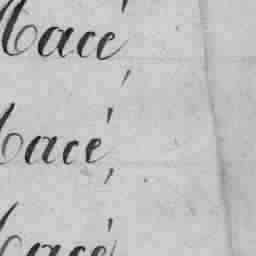 Macé
Macé,
Macé